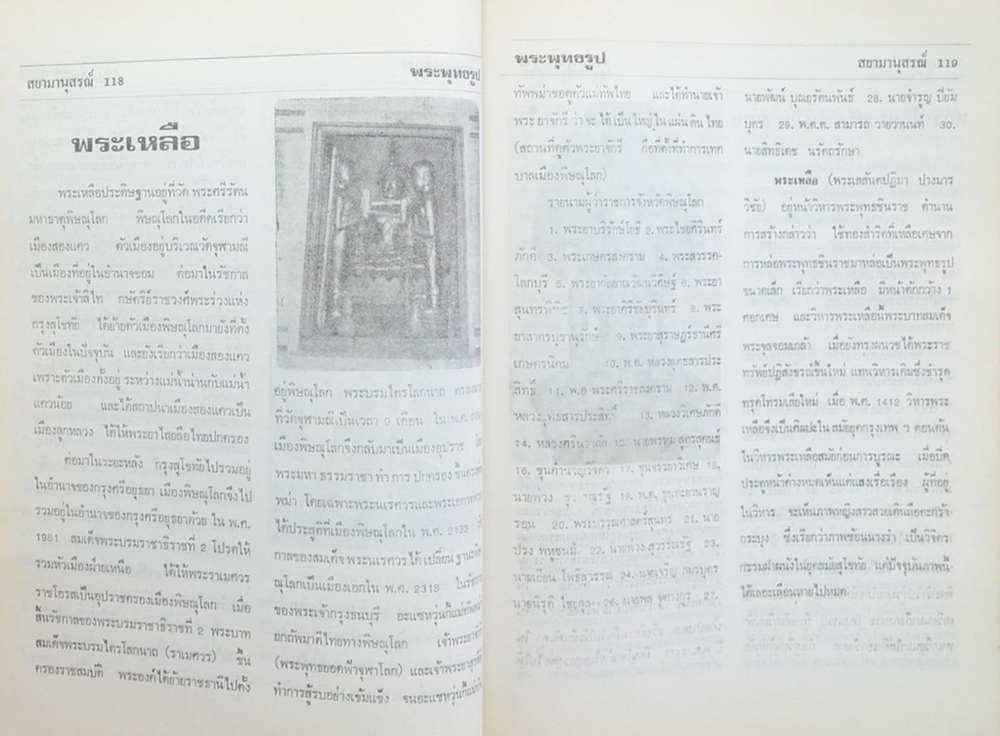 สยามานุสรณ์ 118
พระพุทธรูป
พระเหลือ
พระเหลือประดิษฐานอยู่ที่วัด พระศรีรัตน
มหาธาตุพิษณุโลก พิษณุโลกในอดีตเรียกว่า
เมืองสองแคว ตัวเมืองอยู่บริเวณวัดจุฬามณี
เป็นเมืองที่อยู่ในอำนาจขอม ต่อมาในรัชกาล
ของพระเจ้าลิไท กษัตริย์ราชวงศ์พระร่วงแห่ง
กรุงสุโขทัย ได้ย้ายตัวเมืองพิษณุโลกมายังที่ตั้ง
ตัวเมืองในปัจจุบัน และยังเรียกว่าเมืองสองแคว
เพราะตัวเมืองตั้งอยู่ ระหว่างแม่น้ำน่านกับแม่น้ำ
แควน้อย และได้สถาปนาเมืองสองแควเป็น
เมืองลูกหลวง ได้ให้พระยาไสยลือไทยปกครอง
ต่อมาในระยะหลัง กรุงสุโขทัยไปรวมอยู่
ในอำนาจของกรุงศรีอยุธยา เมืองพิษณุโลกจึงไป
รวมอยู่ในอำนาจของกรุงศรีอยุธยาด้วย ใน พ.ศ.
1981 สมเด็จพระบรมราชาธิราชที่ 2 โปรดให้
รวมหัวเมืองฝ่ายเหนือ ได้ให้พระราเมศวร
ราชโอรสเป็นอุปราชครองเมืองพิษณุโลก เมื่อ
สิ้นรัชกาลของพระบรมราชาธิราชที่ 2 พระบาท
สมเด็จพระบรมไตรโลกนาถ (ราเมศวร) ขึ้น
ครองราชสมบัติ พระองค์ได้ย้ายราชธานีไปตั้ง
อยู่พิษณุโลก พระบรมไตรโลกนาถ
ที่วัดจุฬามณีเป็นเวลา 9 เดือน ใน พ.ศ.
เมืองพิษณุโลกจึงกลับมาเป็นเมืองอุปราช
พระมหา ธรรมราชา ทำ การ ปกครอง
พม่า โดยเฉพาะพระนเรศวรและพระเอกาทศ
ได้ประสูติที่เมืองพิษณุโลกใน พ.ศ. 2133
กาลของสมเด็จ พระนเรศวร ได้ เปลี่ยน ฐานะ
ณุโลกเป็นเมืองเอกใน พ.ศ. 2318 ในรัช
ของพระเจ้ากรุงธนบุรี อะแซหวุ่นกี้แม่ทัพ
ยกทัพมาตีไทยทางพิษณุโลก เจ้าพระยา
(พระพุทธยอดฟ้าจุฬาโลก) และเจ้าพระยาสุร
ทำการสู้รบอย่างเข้มแข็ง จนอะแซหวุ่นกี้แม่
พระพุทธรูป
สยามานุสรณ์ 119
ทัพพม่าขอดูตัวแม่ทัพไทย และได้ทำนายเจ้า
พระ ยาจักรี ว่า จะ ได้ เป็น ใหญ่ ใน แผ่น ดิน ไทย
(สถานที่ดูตัวพระยาจักรี คือที่ตั้งที่ทำการเทศ
บาลเมืองพิษณุโลก)
รายนามผู้ว่าราชการจังหวัดพิษณุโลก
1. พระยาบริรักษ์โยธี 2. พระไชยศิรินทร์
ภักดี 3. พระเกษตรสงคราม 4. พระสวรรค-
โลกบุรี 5. 6. พระยา
สุนทรพิพิธ 7. พระยาศิริชัยบุรินทร์ 8. พระ
ยาสาครบุรานุรักษ์ 9. พระยาสุราษฎร์ธานีศรี
เกษตรนิคม 10. พ.ต. หลวงยุทธสารประ
สิทธิ์ 11. พ.อ พระศรีราชสงคราม 12. พ.ต.
หลวงยุทธสารประสิทธิ์ 13. หลวงวิเศษภักดี
14. 15. นายพรหม สูตรสุคนธ์
16. ขุนคำนวณวิจิตร 17. ขุนจรรยาวิเศษ 18.
นายพ่วง 19. พ.ต. ขุนทะยานราญ
รอน 20. 21. นาย
ปรง พหูชนม์ 22. นายพ่วง สุวรรณรัฐ 23.
นายเยียน โพธิสุวรรณ 24. นายเจริญ ภมรบุตร
นายนิรุติ ไชยกูล 26. นายพล จุฑางกูร 27.
นายพัฒน์ บุณยรัตนพันธ์ 28. นายจำรูญ ปิยัม
บุตร 29. พ.ต.ต. สามารถ วายวานนท์ 30.
นายสิทธิเดช นรัตถรักษา
พระเหลือ (พระเสสันตปฏิมา ปางมาร
วิชัย) อยู่หน้าวิหารพระพุทธชินราช ตำนาน
การสร้างกล่าวว่า ใช้ทองสำริดที่เหลือเศษจาก
การหล่อพระพุทธชินราชมาหล่อเป็นพระพุทธรูป
ขนาดเล็ก เรียกว่าพระเหลือ มีหน้าตักกว้าง 1
ศอกเศษ และวิหารพระเหลือนี้พระบาทสมเด็จ
พระจุลจอมเกล้า เมื่อยังทรงผนวช ได้พระราช
ทรัพย์ปฏิสังขรณ์ขึ้นใหม่ แทนวิหารเดิมซึ่งชำรุด
ทรุดโทรมเสียใหม่ เมื่อ พ.ศ. 1412 วิหารพระ
เหลือจึงเป็นศิลปะใน สมัยยุคกรุงเทพ ฯ ตอนต้น
ในวิหารพระเหลือสมัยก่อนการบูรณะ เมื่อปิด
ประตูหน้าต่างหมดเห็นแต่แสงเรื่อเรือง ผู้ที่อยู่
ในวิหาร จะเห็นภาพหญิงสาวสวยเดินถือตะกร้า
กระบุง ซึ่งเรียกว่าภาพซ้อนนางรำ เป็นวิจิตร
กรรมฝาผนังในยุคสมัยสุโขทัย แต่ปัจจุบันภาพนี้
ได้เลอะเลือนหายไปหมด